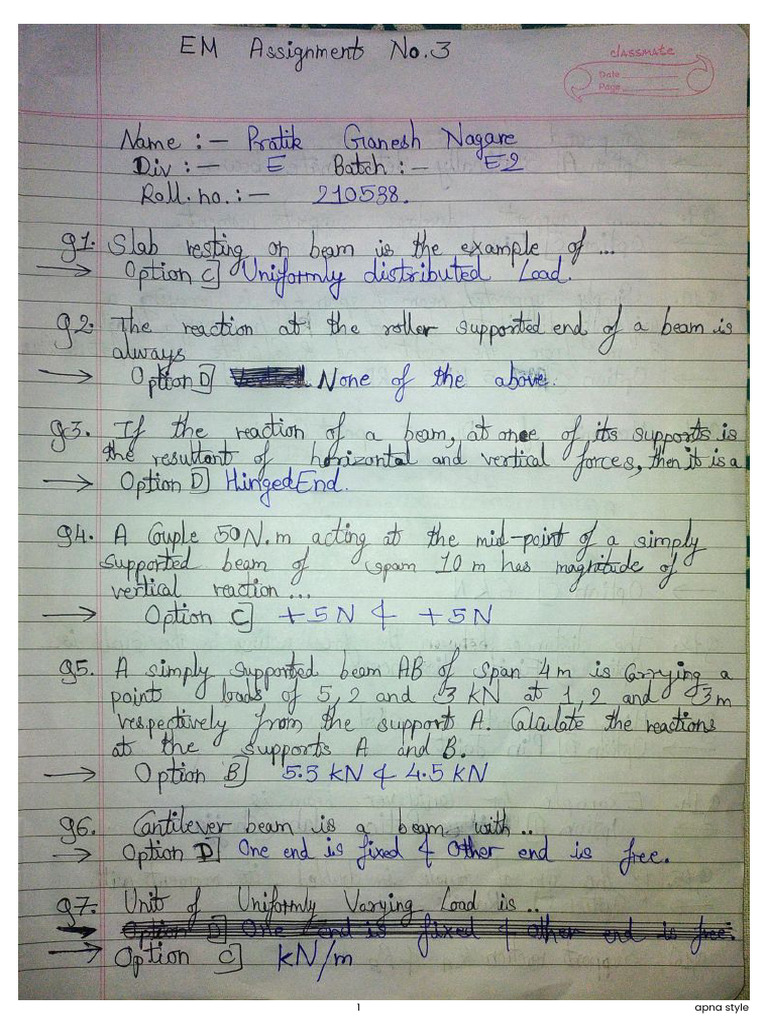 EM Assignment No.3
classmate
Date
Page
Name :- Pratik Ganesh Nagare
Div :- E Batch :- E2
Roll.no.:- 210538.
Q1. Slab resting on beam is the example of ...
→ Option C] Uniformly distributed Load.
Q2. The reaction at the roller supported end of a beam is
always
→ Option D] None of the above.
Q3. If the reaction of a beam, at one of its supports is
the resultant of horizontal and vertical forces, then it is a
→ Option D] Hinged End.
Q4. A Couple 50N.m acting at the mid-point of a simply
supported beam of spam 10 m has magnitude of
vertical reaction ...
→ Option C] +5N & +5N
Q5. A simply supported beam AB of span 4m is Carrying a
point loads of 5, 2 and 3 kN at 1, 2 and 3m
respectively from the support A. Calculate the reactions
at the supports A and B.
→ Option B] 5.5 kN & 4.5 kN
Q6. Cantilever beam is a beam with ..
→ Option D] One end is fixed & Other end is free.
Q7. Unit of Uniformly Varying Load is ..
→ Option D] One end is fixed & other end is free.
→ Option C] kN/m
1
apna style